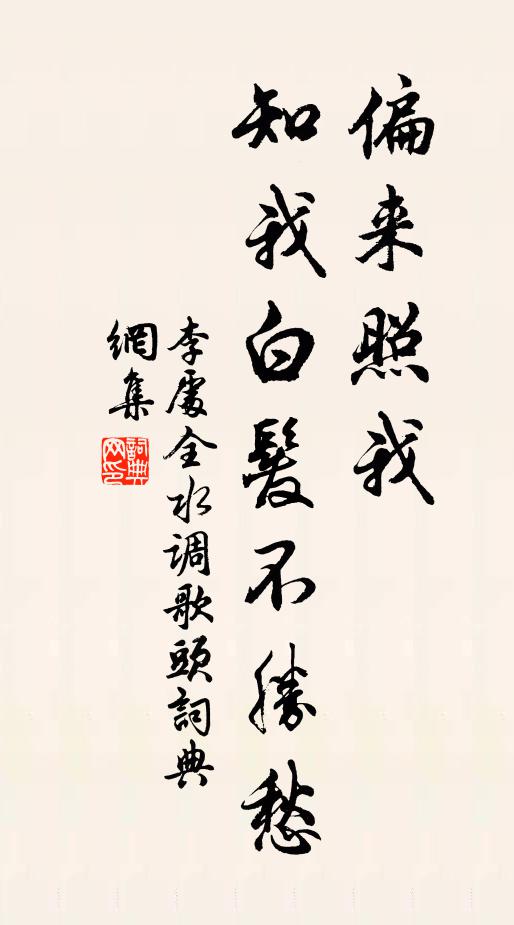 偏来照我
知我白髮不勝愁
李處全水调歌頭詞典
網集
詞典網印